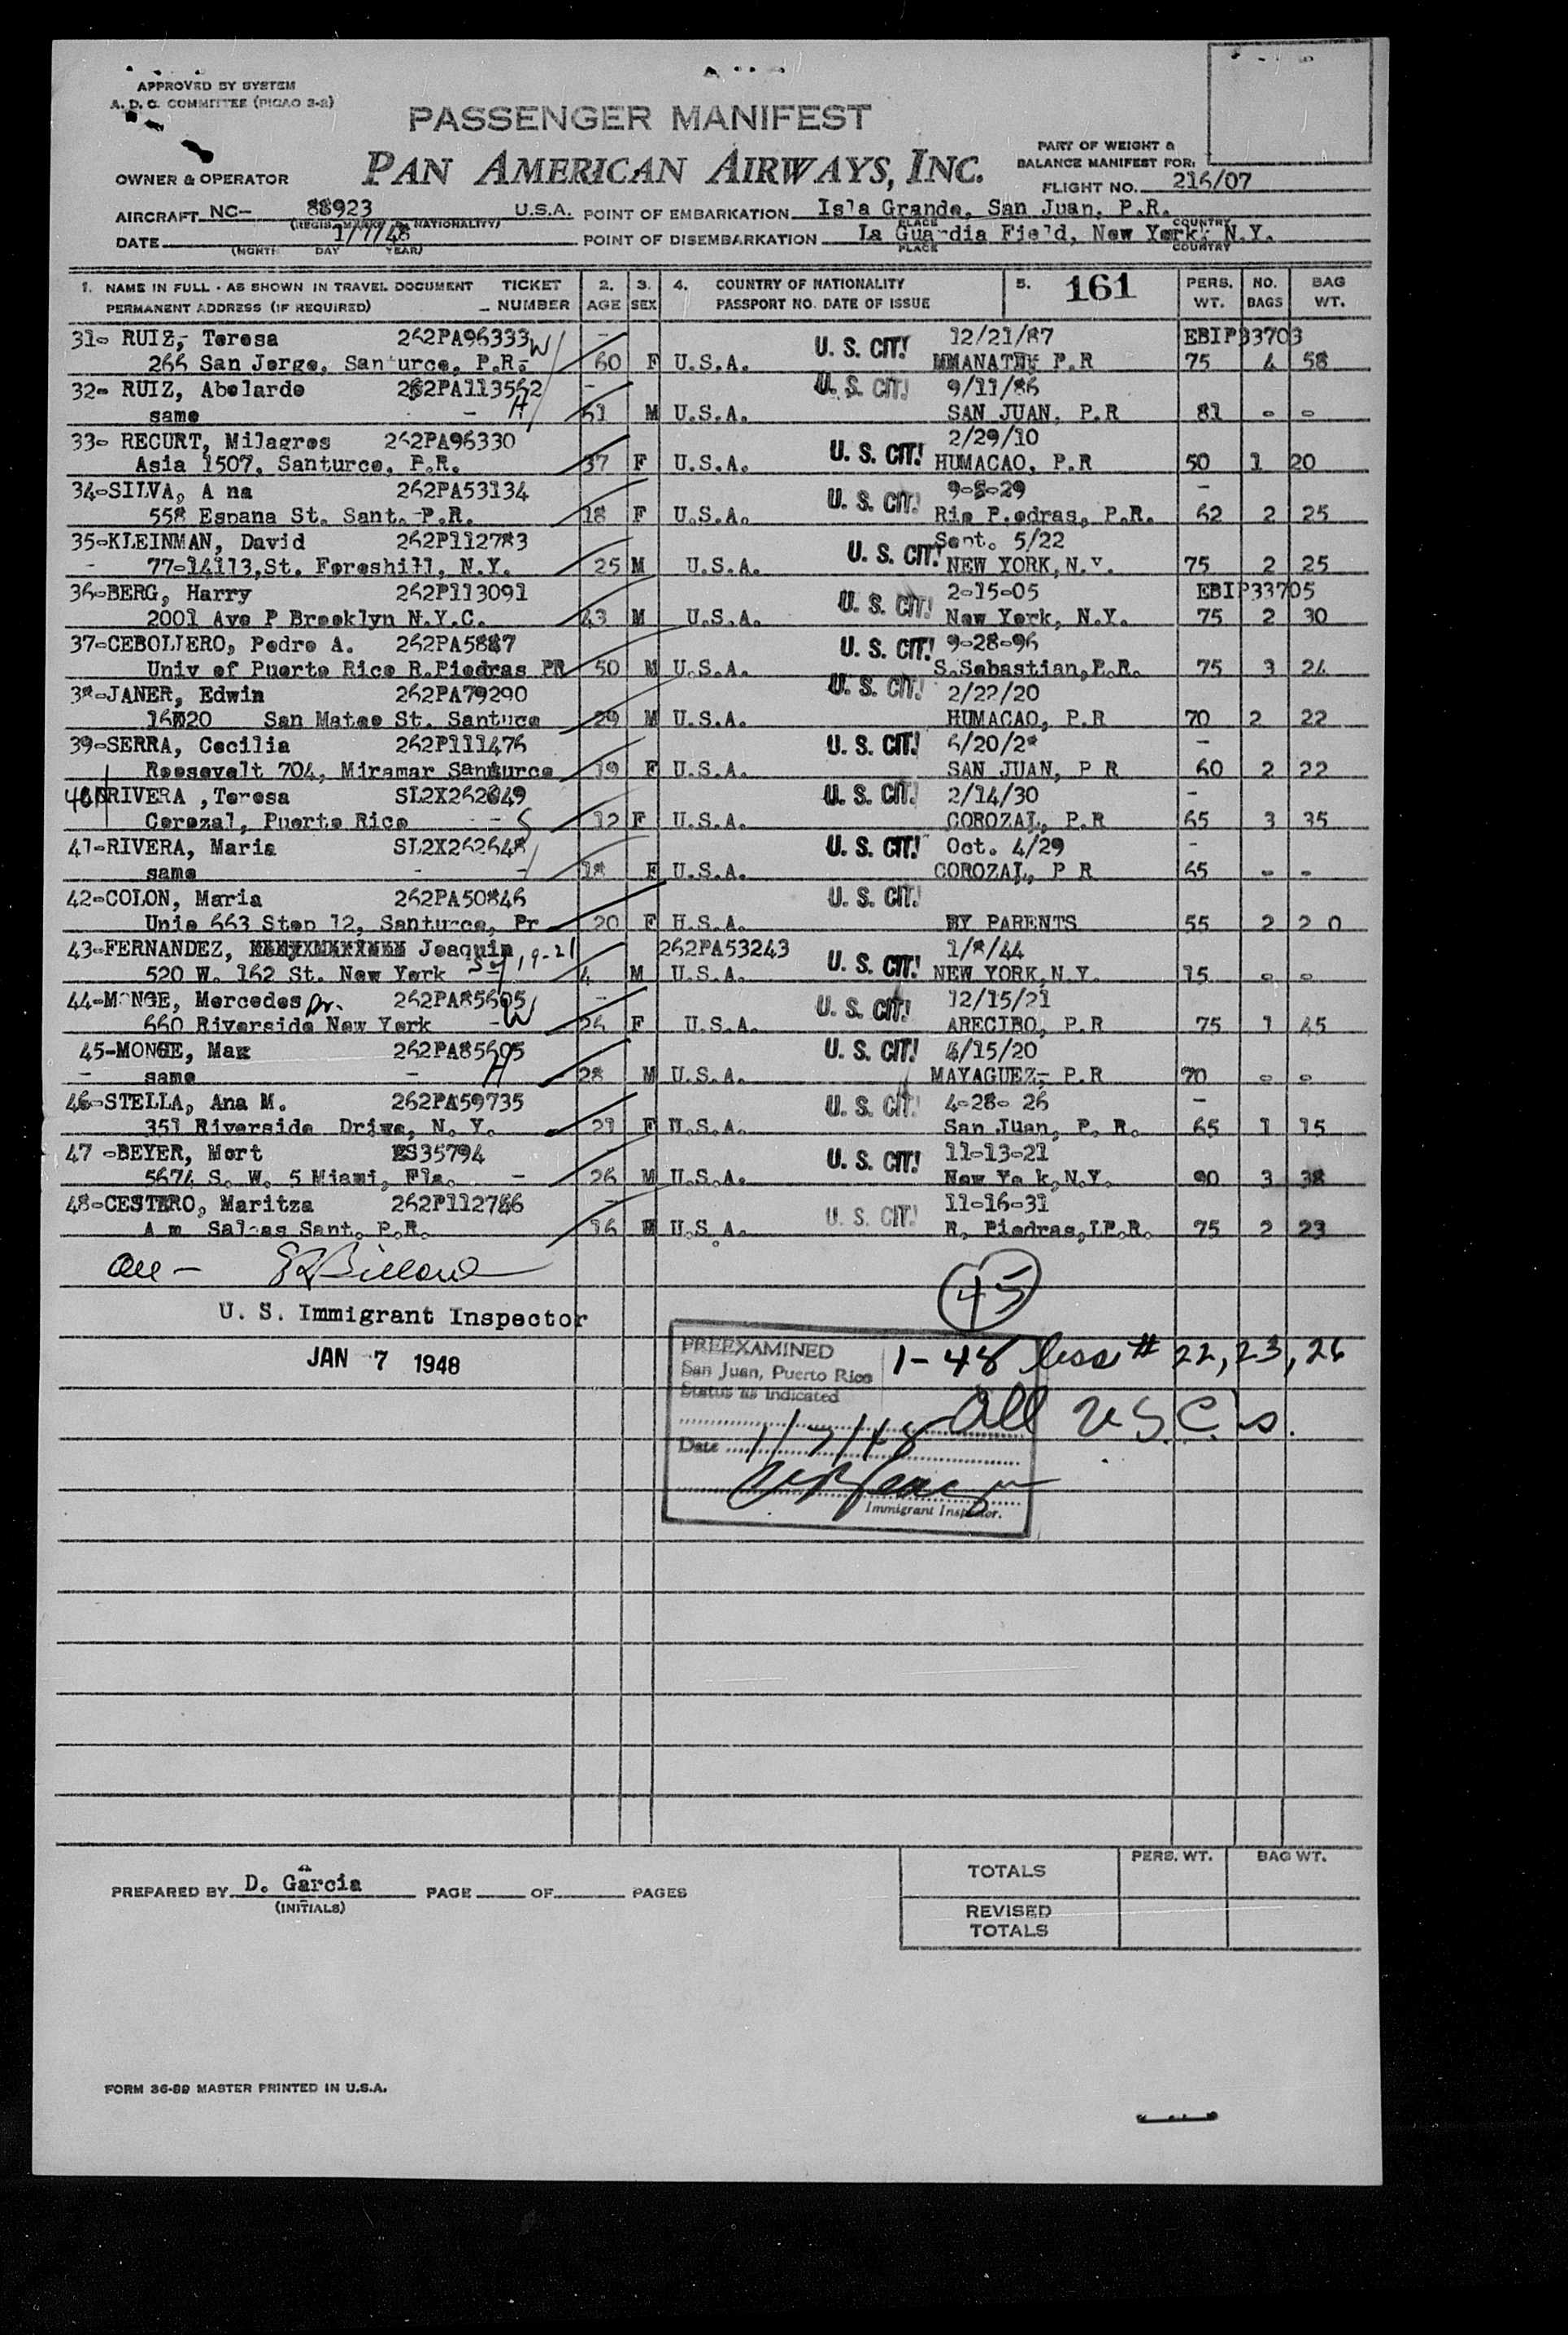 APPROVED BY SYSTEM
A. D. C. COMMITTEE (PICAO 3-2)
PASSENGER MANIFEST
PAN AMERICAN AIRWAYS, INC.
OWNER & OPERATOR
PART OF WEIGHT &
BALANCE MANIFEST FOR:
FLIGHT NO. 216/07
AIRCRAFT NC- 88923 U.S.A. POINT OF EMBARKATION Isla Grande, San Juan, P.R.
(REGIS. MARKS & NATIONALITY) PLACE COUNTRY
DATE 1/7/48 POINT OF DISEMBARKATION La Guardia Field, New York, N.Y.
(MONTH DAY YEAR) PLACE COUNTRY
1. NAME IN FULL - AS SHOWN IN TRAVEL DOCUMENT TICKET 2. 3. 4. COUNTRY OF NATIONALITY 5. 161 PERS. NO. BAG
PERMANENT ADDRESS (IF REQUIRED) NUMBER AGE SEX PASSPORT NO. DATE OF ISSUE WT. BAGS WT.
31- RUIZ, Teresa 262PA96333 W U. S. CIT! 12/21/87 EBIP33703
266 San Jorge, Santurce, P.R. 60 F U.S.A. MANATI P.R 75 4 58
32- RUIZ, Abelardo 262PA113562 U. S. CIT! 9/11/86
same - H 61 M U.S.A. SAN JUAN, P.R 81 - -
33- RECURT, Milagros 262PA96330 U. S. CIT! 2/29/10
Asia 1507, Santurce, P.R. 37 F U.S.A. HUMACAO, P.R 50 1 20
34-SILVA, A na 262PA53134 U. S. CIT! 9-5-29 -
558 Espana St. Sant. P.R. 18 F U.S.A. Rio P.edras, P.R. 62 2 25
35-KLEINMAN, David 262P112783 U. S. CIT! Sept. 5/22
- 77-14113,St. Foreshill, N.Y. 25 M U.S.A. NEW YORK,N.Y. 75 2 25
36-BERG, Harry 262P113091 U. S. CIT! 2-15-05 EBIP33705
2001 Ave P Brooklyn N.Y.C. 43 M U.S.A. New York, N.Y. 75 2 30
37-CEBOLLERO, Pedro A. 262PA5887 U. S. CIT! 9-28-96
Univ of Puerto Rico R.Piedras PR 50 M U.S.A. S.Sebastian,P.R. 75 3 24
38-JANER, Edwin 262PA79290 U. S. CIT! 2/22/20
San Mateo St. Santuce 29 M U.S.A. HUMACAO, P.R 70 2 22
39-SERRA, Cecilia 262P111476 U. S. CIT! 6/20/28 -
Roosevelt 704, Miramar Santurce 19 F U.S.A. SAN JUAN, P R 60 2 22
40-RIVERA ,Teresa SL2X262649 U. S. CIT! 2/14/30 -
Corozal, Puerto Rico - - S 12 F U.S.A. COROZAL, P.R 65 3 35
41-RIVERA, Maria SL2X262648 U. S. CIT! Oct. 4/29 -
same - - 18 F U.S.A. COROZAL, P R 65 - -
42-COLON, Maria 262PA50846 U. S. CIT!
Unio 663 Stop 12, Santurce, Pr 20 F U.S.A. BY PARENTS 55 2 2 0
43-FERNANDEZ, Joaquin 262PA53243 U. S. CIT! 1/8/44
520 W. 162 St. New York 4 M U.S.A. NEW YORK,N.Y. 15 - -
44-MONGE, Mercedes Dr. 262PA85605 - U. S. CIT! 12/15/21
660 Riverside New York - W 26 F U.S.A. ARECIBO, P.R 75 1 45
45-MONGE, Max 262PA85605 U. S. CIT! 4/15/20
- same - H 28 M U.S.A. MAYAGUEZ, P.R 70 - -
46-STELLA, Ana M. 262PA59735 U. S. CIT! 4-28- 26 -
351 Riverside Drive, N. Y. 21 F U.S.A. San Juan, P. R. 65 1 15
47 -BEYER, Mort ES35794 U. S. CIT! 11-13-21
5674 S. W. 5 Miami, Fla. - 26 M U.S.A. New Yo k,N.Y. 90 3 38
48-CESTERO, Maritza 262P112746 - U. S. CIT! 11-16-31
A m Salgas Sant. P.R. 16 F U.S.A. R. Piedras,P.R. 75 2 23
All -
45
U. S. Immigrant Inspector
JAN 7 1948
PREEXAMINED
San Juan, Puerto Rico
Status as Indicated
1-48 less # 22, 23, 26
All U.S.C.'s.
Date 1/7/48
Immigrant Inspector.
PREPARED BY D. Garcia PAGE OF PAGES
(INITIALS)
PERS. WT. BAG WT.
TOTALS
REVISED
TOTALS
FORM 36-89 MASTER PRINTED IN U.S.A.